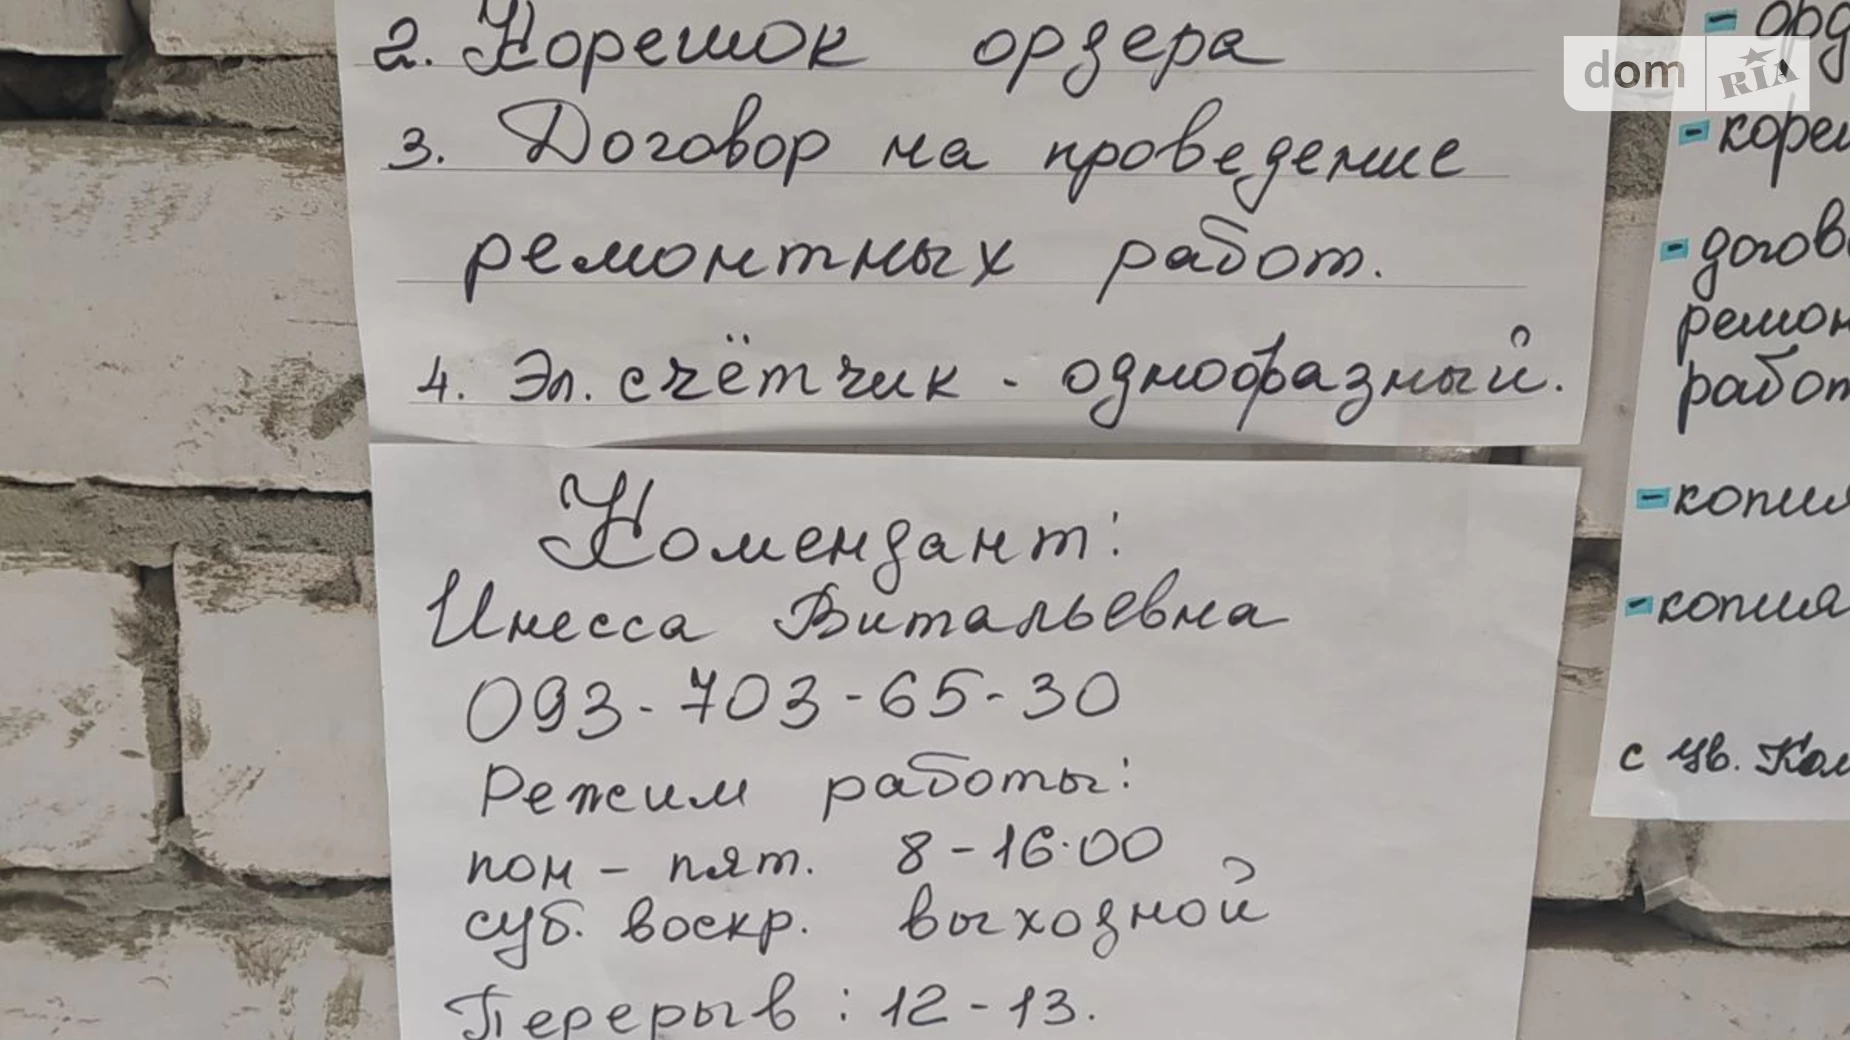 2. Корешок ордера
3. Договор на проведение
ремонтных работ.
4. Эл. счётчик - однофазный.
Комендант:
Инесса Витальевна
093-703-65-30
Режим работы:
пон - пят. 8-16.00
суб. воскр. выходной
Перерыв : 12-13.
dom RIA
- орд
- кореш
- догово
ремон
работ
- копия
- копия
с цв. Ком